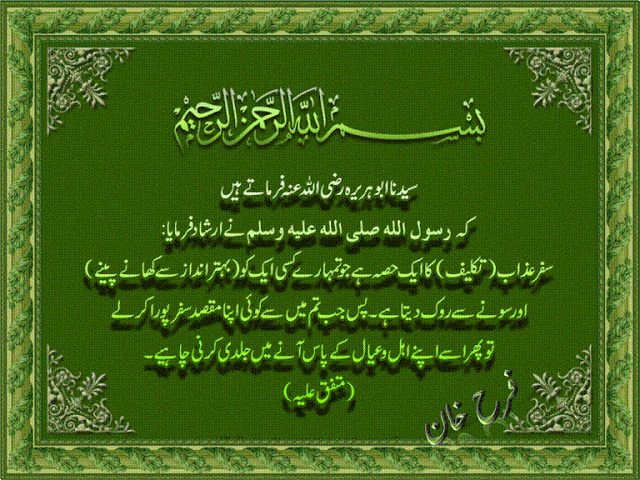 بسم الله الرحمن الرحيم
سیدنا ابو ہریرہ رضی اللہ عنہ فرماتے ہیں
کہ رسول الله صلى الله عليه وسلم نے ارشاد فرمایا:
سفر عذاب (تکلیف) کا ایک حصہ ہے جو تمہارے کسی ایک کو (بہتر انداز سے کھانے پینے)
اور سونے سے روک دیتا ہے۔ پس جب تم میں سے کوئی اپنا مقصد سفر پورا کر لے
تو پھر اسے اپنے اہل و عیال کے پاس آنے میں جلدی کرنی چاہیے۔
(متفق علیہ)
فرح خان